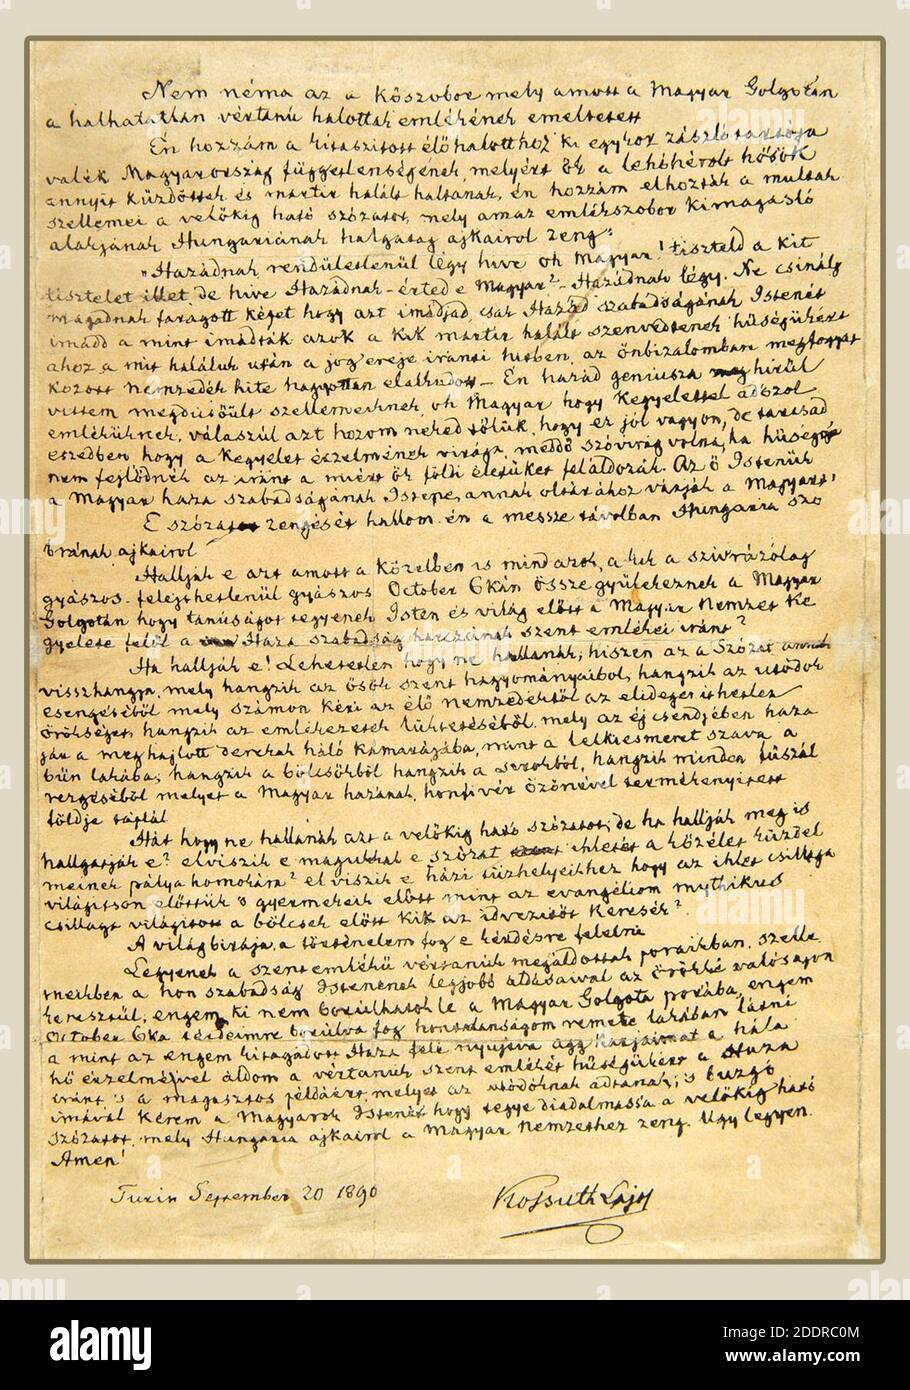 Nem néma az a kőszobor mely amott a Magyar Golgotán
a halhatatlan vértanú halottak emlékének emeltetett
Én hozzám a kitaszított élő halotthoz ki egykor zászlótartója
valék Magyarország függetlenségének, melyért ők a lehóhérolt hősök
annyit küzdöttek és martir halált haltanak, én hozzám elhozták a multak
szellemei a velőkig ható szózatot, mely amaz emlékszobor kimagasló
alakjának Hungáriának halgatag ajkairol zeng:
"Hazádnak rendületlenül légy hive oh Magyar! tiszteld a kit
tisztelet illet, de hive Hazádnak – érted e Magyar? – Hazádnak légy. Ne csinálj
magadnak faragott képet hogy azt imádjad, csak Hazád szabadságának Istenét
imádd a mint imádták azok a kik martir halált szenvedtenek hűségükért
ahoz a mit haláluk után a jog ereje iránti hitben, az önbizalomban megfogyat
kozott nemzedék hite hagyottan elalkudott – Én hazád geniusza hírül
vittem megdicsőült szellemeiknek, oh Magyar hogy kegyelettel adózol
emléküknek, válaszúl azt hozom neked tőlük, hogy ez jól vagyon, de tartsad
eszedben hogy a kegyelet érzelmének virága, meddő szóvirág volna, ha hűséggé
nem fejlődnék az iránt a miért ők földi életüket feláldozák. Az ő Istenük
a Magyar haza szabadságának Istene, annak oltárához várják a Magyart."
E szózatot zengését hallom én a messze távolban Hungaria szo
brának ajkairol
Hallják e azt amott a közelben is mindazok, a kik a szivrázólag
gyászos felejthetlenül gyászos October 6kán összegyülekeznek a Magyar
Golgotán hogy tanúságot tegyenek Isten és világ előtt a Magyar Nemzet ke
gyelete felől a Haza szabadság harczának szent emlékei iránt?
Ha hallják e! Lehetetlen hogy ne hallanák, hiszen az a szózat annak
visszhangja, mely hangzik az ősök szent hagyományaiból, hangzik az utódok
esengéséből mely számon kéri az élő nemzedéktől az elidegeníthetlen
örökséget, hangzik az emlékezetek lüktetéséből, mely az éj csendjében haza
jár a meghajlott derekak háló kamarájába, mint a lelkiesmeret szava a
bűn lakába; hangzik a bölcsőkből hangzik a sirokból, hangzik minden fűszál
rezgéséből melyet a Magyar hazának, honfi vér özönével termékenyített
földje táplál
Hát hogy ne hallanák azt a velőkig ható szózatot; de ha hallják meg is
hallgatják e? elviszik e magukkal e szózat ihletét a közélet küzdel
meinek pálya homokára? elviszik e házi tűzhelyeikhez hogy az ihlet csillaga
világítson előttük 's gyermekeik előtt mint az evangéliom mythikus
csillaga világított a bölcsek előtt kik az idvezítőt keresék?
A világ birája, a történelem fog e kérdésre felelni
Legyenek a szent emlékű vértanúk megáldottak poraikban, szelle
meikben a hon szabadság Istenének legjobb áldásaival az örökké valóságon
keresztül; engem ki nem borulhatok le a Magyar Golgota porába, engem
October 6ka térdeimre borúlva fog hontalanságom remete lakában látni
a mint az engem kitagadott Haza felé nyujtva agg karjaimat a hála
hő érzelmével áldom a vértanúk szent emlékét hűségükért a Haza
iránt 's a magasztos példáért, melyet az utódoknak adtanak; 's buzgó
imával kérem a Magyarok Istenét hogy tegye diadalmassá a velőkig ható
szózatot, mely Hungaria ajkairol a Magyar Nemzethez zeng. Úgy legyen.
Amen!
Turin September 20 1890
Kossuth Lajos
alamy
Image ID: 2DDRC0M
www.alamy.com